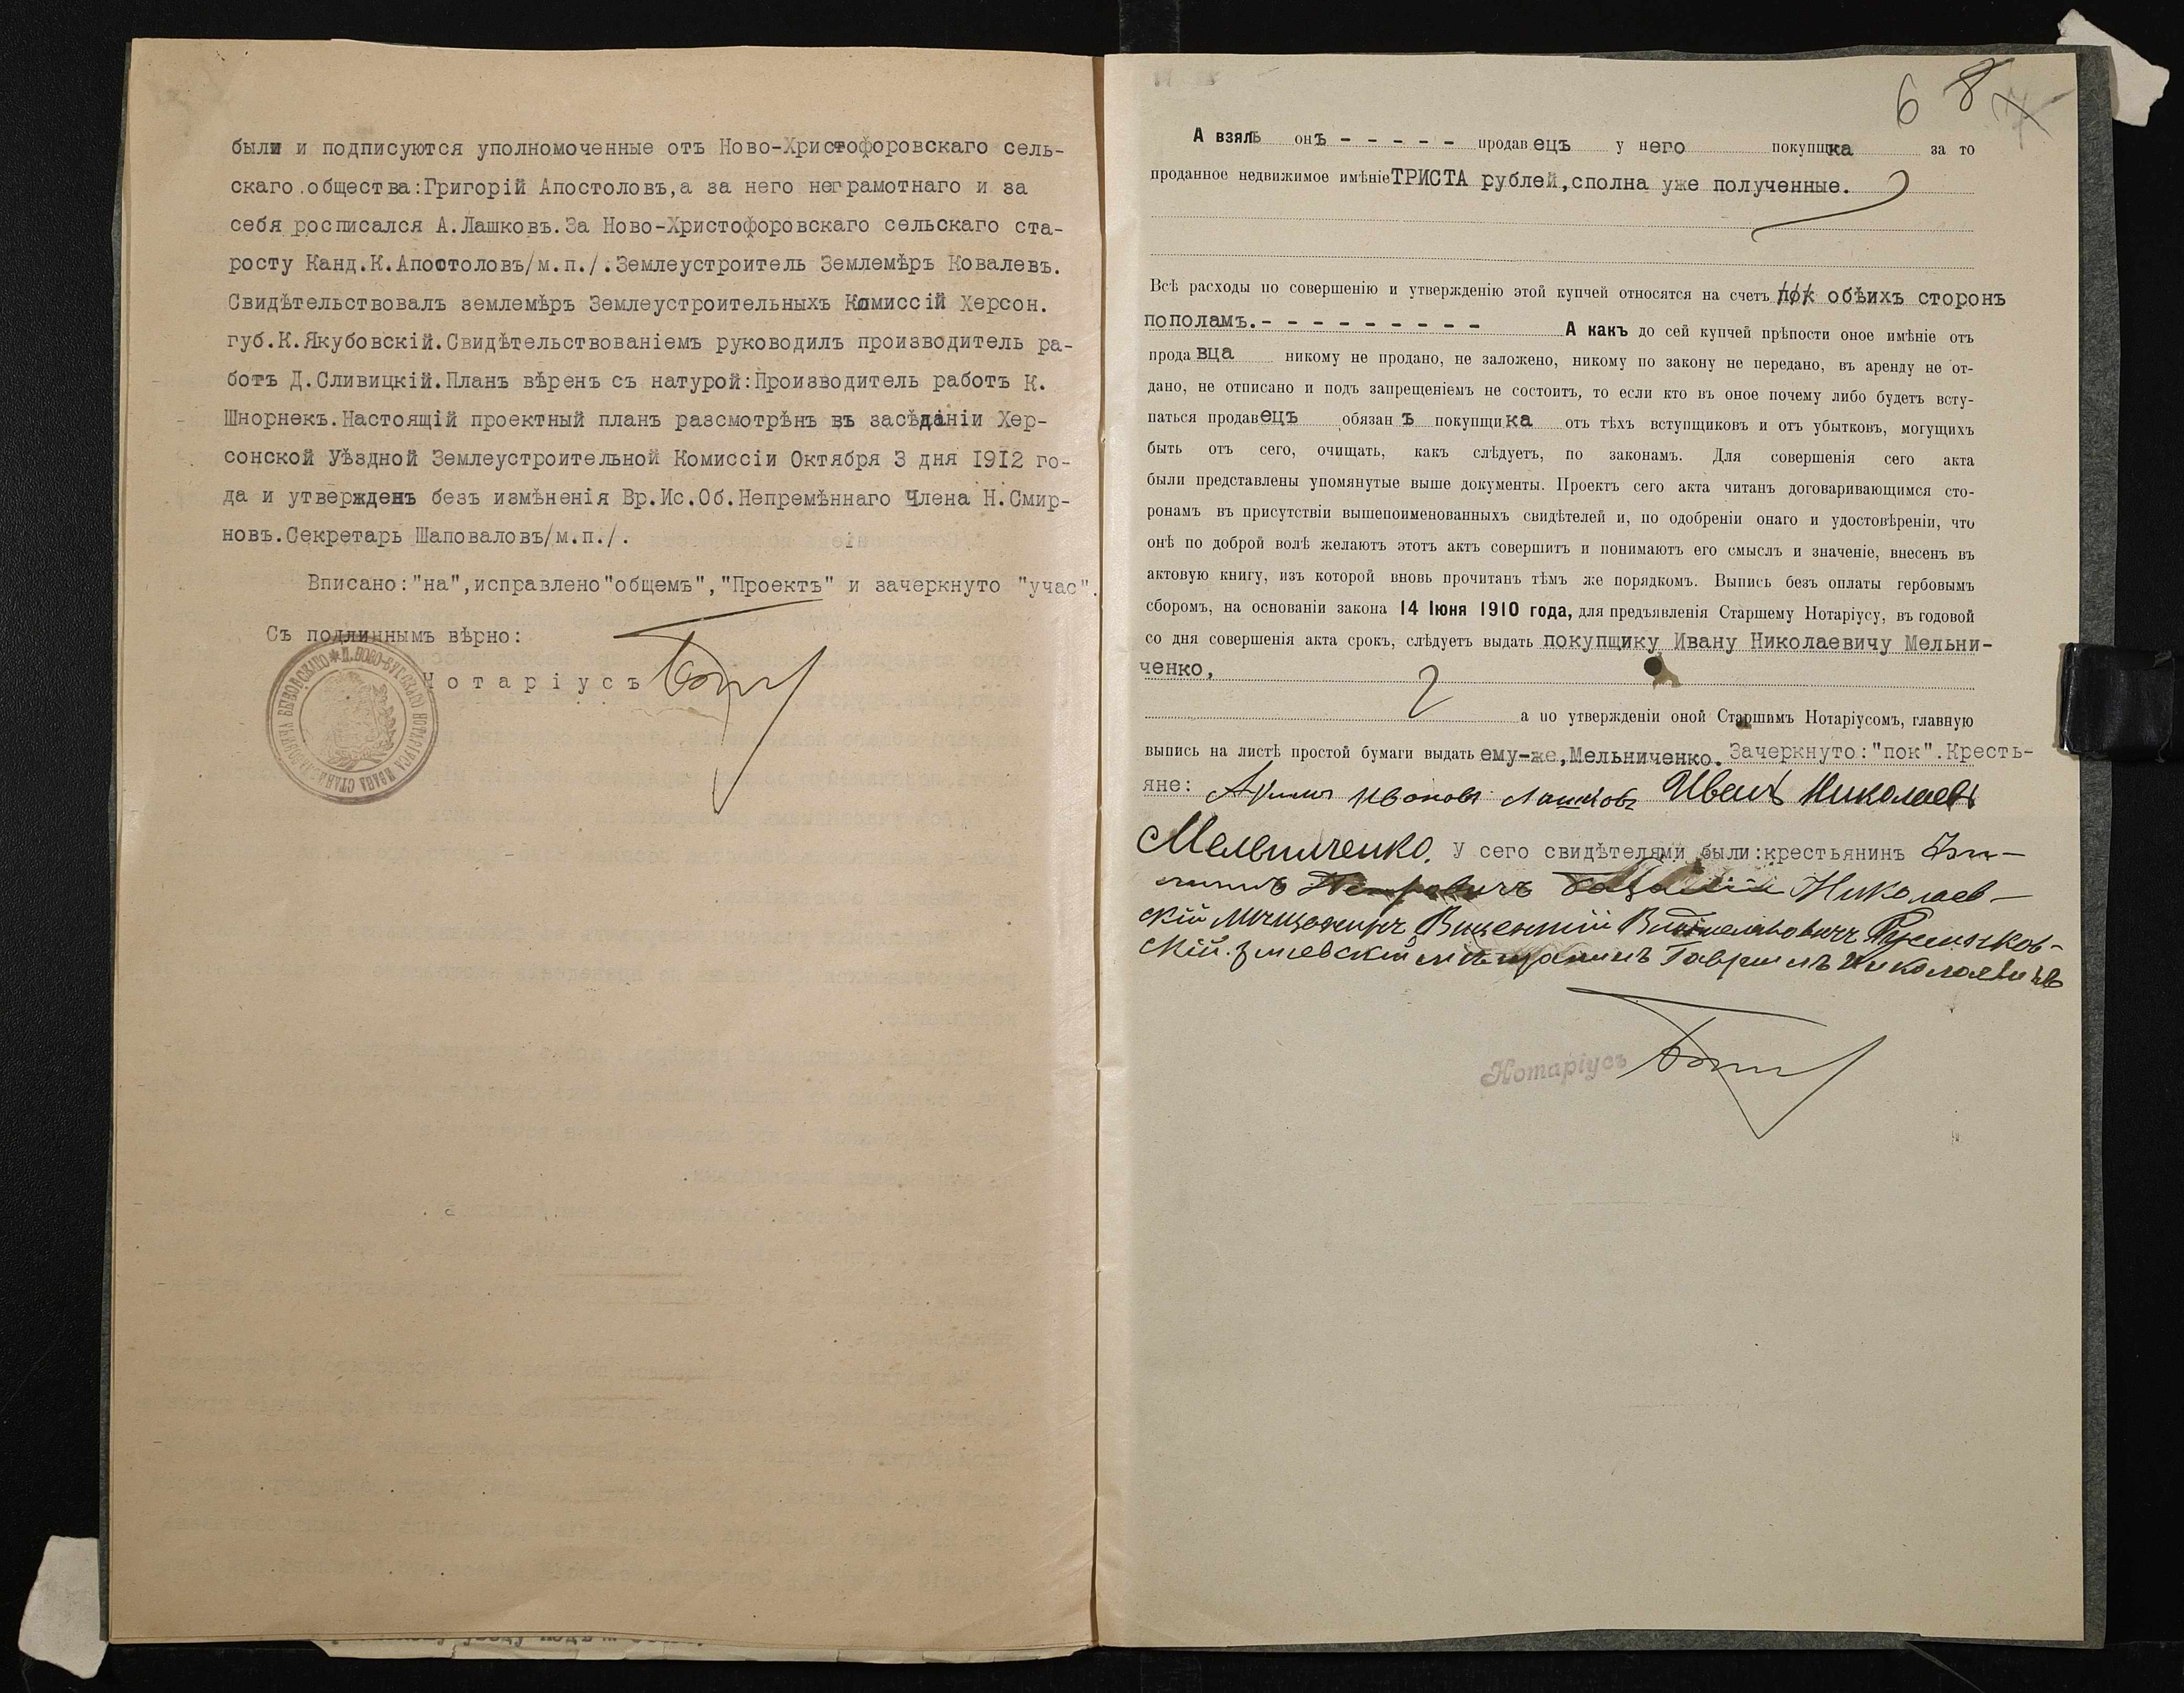 были и подписуются уполномоченные отъ Ново-Христофоровскаго сель-
скаго общества:Григорій Апостоловъ,а за него неграмотнаго и за
себя росписался А.Лашковъ.За Ново-Христофоровскаго сельскаго ста-
росту Канд.К.Апостоловъ/м.п./.Землеустроитель Землемѣръ Ковалевъ.
Свидѣтельствовалъ землемѣръ Землеустроительныхъ Комиссій Херсон.
губ.К.Якубовскій.Свидѣтельствованіемъ руководилъ производитель ра-
ботъ Д.Сливицкій.Планъ вѣренъ съ натурой:Производитель работъ К.
Шнорнекъ.Настоящій проектный планъ разсмотрѣнъ въ засѣданіи Хер-
сонской Уѣздной Землеустроительной Комиссіи Октября 3 дня 1912 го-
да и утвержденъ безъ измѣненія Вр.Ис.Об.Непремѣннаго Члена Н.Смир-
новъ.Секретарь Шаповаловъ/м.п./.
Вписано:"на",исправлено"общемъ","Проектъ" и зачеркнуто "учас".
Съ подлиннымъ вѣрно:
Нотаріусъ
6 8 7
А взялъ онъ - - - - - продавецъ у него покупщика за то
проданное недвижимое имѣніе ТРИСТА рублей,сполна уже полученные.
Всѣ расходы по совершенію и утвержденію этой купчей относятся на счетъ пок обѣихъ сторонъ
пополамъ.- - - - - - - - - А какъ до сей купчей прѣпости оное имѣніе отъ
продавца никому не продано, не заложено, никому по закону не передано, въ аренду не от-
дано, не отписано и подъ запрещеніемъ не состоитъ, то если кто въ оное почему либо будетъ всту-
паться продавецъ обязанъ покупщика отъ тѣхъ вступщиковъ и отъ убытковъ, могущихъ
быть отъ сего, очищать, какъ слѣдуетъ, по законамъ. Для совершенія сего акта
были представлены упомянутые выше документы. Проектъ сего акта читанъ договаривающимся сто-
ронамъ въ присутствіи вышепоименованныхъ свидѣтелей и, по одобреніи онаго и удостовѣреніи, что
онѣ по доброй волѣ желаютъ этотъ актъ совершить и понимаютъ его смыслъ и значеніе, внесенъ въ
актовую книгу, изъ которой вновь прочитанъ тѣмъ же порядкомъ. Выпись безъ оплаты гербовымъ
сборомъ, на основаніи закона 14 Іюня 1910 года, для предъявленія Старшему Нотаріусу, въ годовой
со дня совершенія акта срокъ, слѣдуетъ выдать покупщику Ивану Николаевичу Мельни-
ченко,
а по утвержденіи оной Старшимъ Нотаріусомъ, главную
выпись на листѣ простой бумаги выдать ему-же,Мельниченко. Зачеркнуто:"пок".Кресть-
яне: Ивановъ Лашковъ Иванъ Николаевъ
Мельниченко. У сего свидѣтелями были:крестьянинъ
Петровичъ Николаев-
скій мѣщанинъ Викентій
скій. Змиевскій мѣщанинъ Гавріилъ Николаевичъ
Нотаріусъ